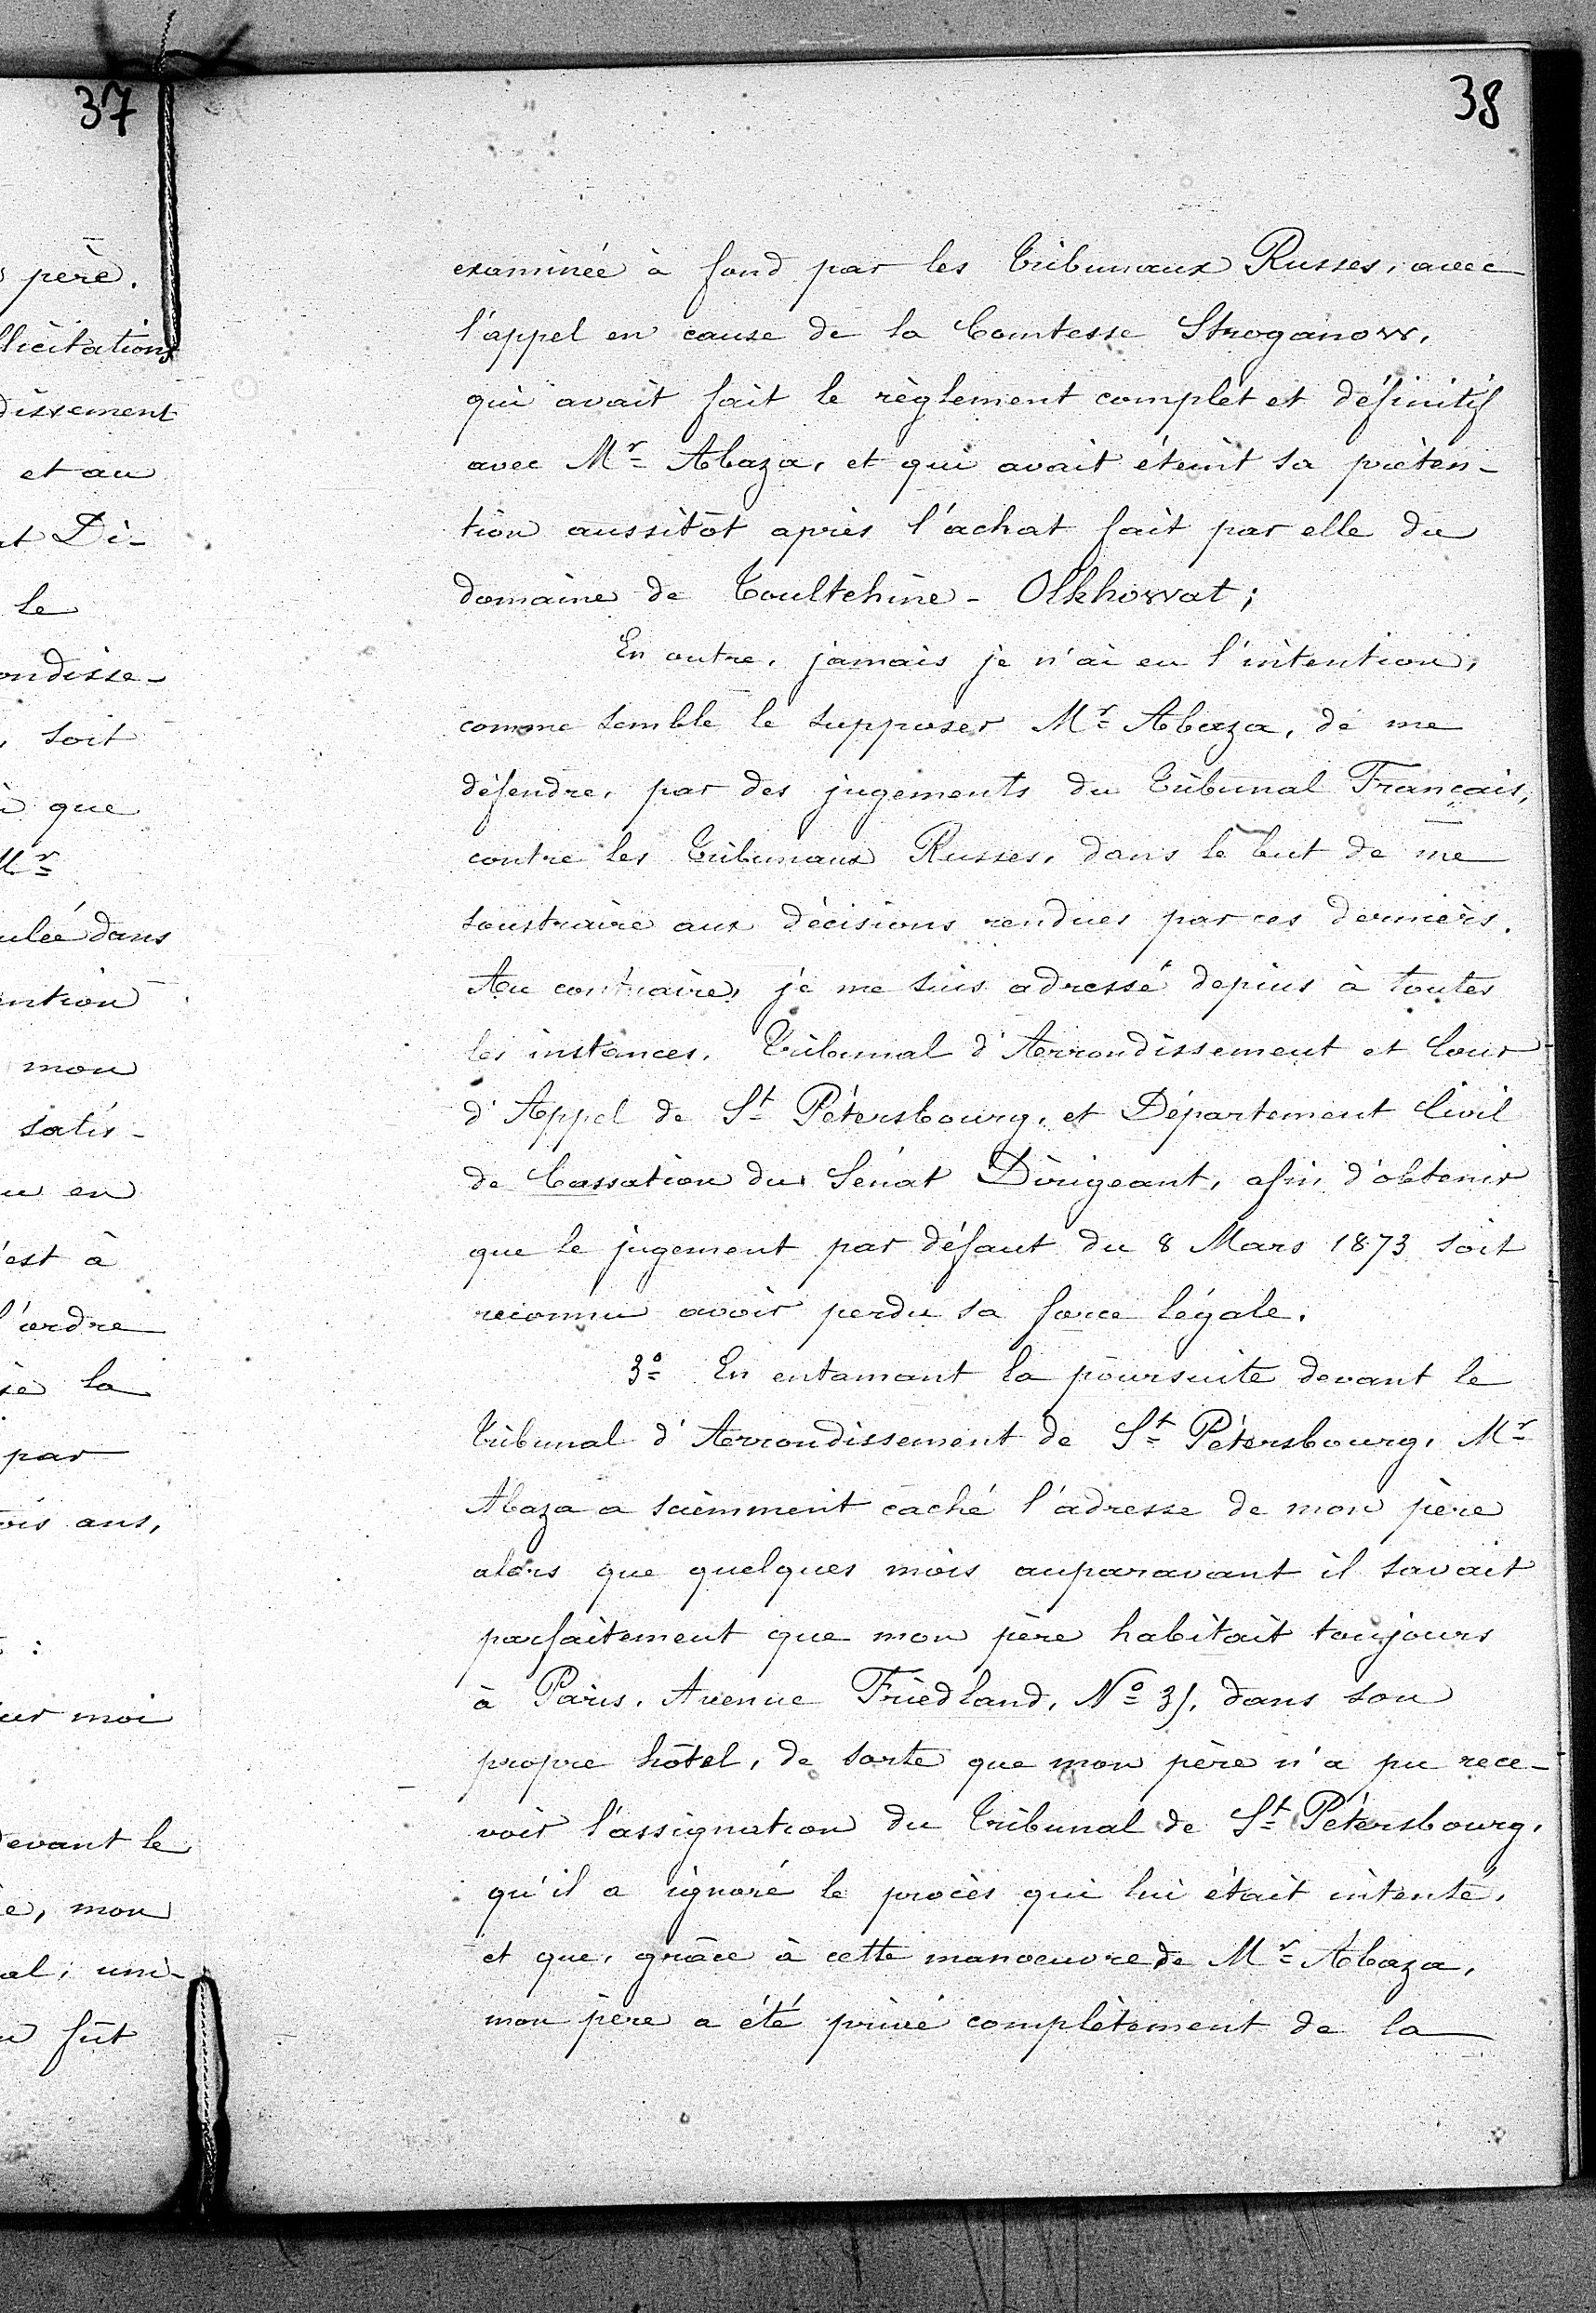 37
38
père.
llicitations
dissement
et au
at Di-
le
ondisse-
, soit
que
Mr
ulée dans
ention
mon
satis-
en
'est à
l'ordre
la
par
ois ans,
:
moi
devant le
, mon
al; uni-
fût
examinée à fond par les Tribunaux Russes, avec
l'appel en cause de la Comtesse Stroganow,
qui avait fait le règlement complet et définitif
avec Mr Abaza, et qui avait éteint sa préten-
tion aussitôt après l'achat fait par elle du
domaine de Toultchine - Olkhowat;
En outre, jamais je n'ai eu l'intention,
comme semble le supposer Mr Abaza, de me
défendre, par des jugements du Tribunal Français,
contre les Tribunaux Russes, dans le but de me
soustraire aux décisions rendues par ces derniers.
Au contraire, je me suis adressé depuis à toutes
les instances, Tribunal d'Arrondissement et Cour
d'Appel de St Pétersbourg, et Département Civil
de Cassation du Sénat Dirigeant, afin d'obtenir
que le jugement par défaut du 8 Mars 1873 soit
reconnu avoir perdu sa force légale.
3o En entamant la poursuite devant le
Tribunal d'Arrondissement de St Pétersbourg, Mr
Abaza a sciemment caché l'adresse de mon père
alors que quelques mois auparavant il savait
parfaitement que mon père habitait toujours
à Paris, Avenue Friedland, No dans son
propre hôtel, de sorte que mon père n'a pu rece-
voir l'assignation du Tribunal de St Pétersbourg,
qu'il a ignoré le procès qui lui était intenté,
et que, grâce à cette manoeuvre de Mr Abaza,
mon père a été privé complètement de la